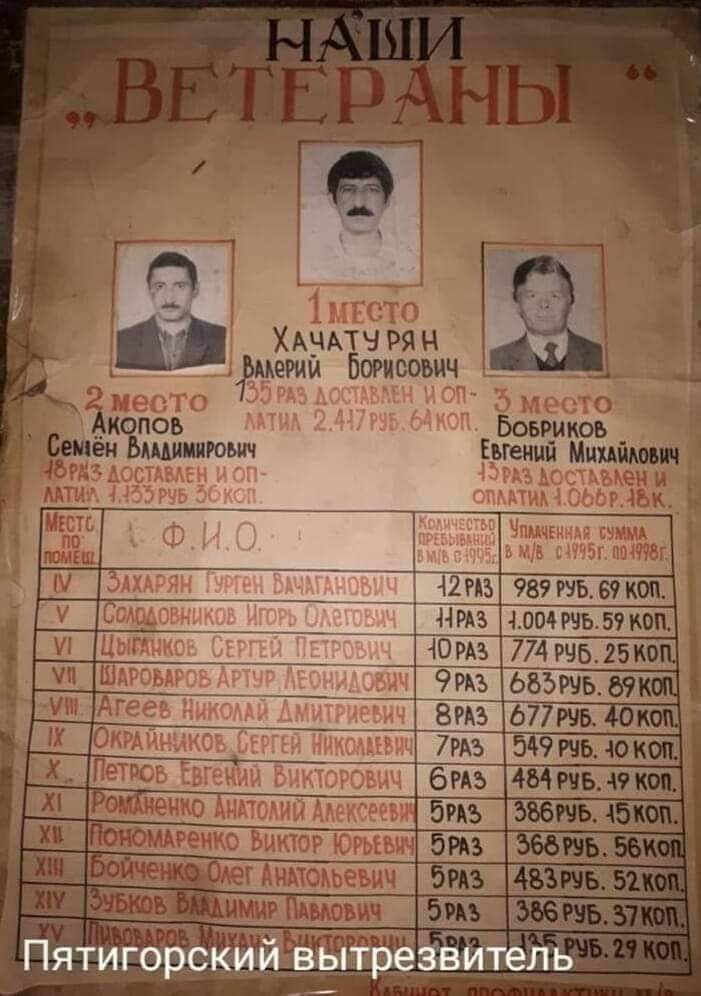 НАШИ
„ВЕТЕРАНЫ“
1 место
ХАЧАТУРЯН
Валерий Борисович
135 раз доставлен и оп-
латил 2.417 руб. 64 коп.
2 место
Акопов
Семён Владимирович
18 раз доставлен и оп-
латил 1.133 руб 36 коп.
3 место
Бобриков
Евгений Михайлович
13 раз доставлен и
оплатил 1.066 р. 18 к.
Место по помещ. Ф.И.О. Количество пребываний в м/в с 1995г. Уплаченная сумма в м/в с 1995г. по 1998г.
IV Захарян Гурген Вачаганович 12 раз 989 руб. 69 коп.
V Солодовников Игорь Олегович 11 раз 1.004 руб. 59 коп.
VI Цыганков Сергей Петрович 10 раз 774 руб. 25 коп.
VII Шароваров Артур Леонидович 9 раз 683 руб. 89 коп.
VIII Агеев Николай Дмитриевич 8 раз 677 руб. 40 коп.
IX Окрайников Сергей Николаевич 7 раз 549 руб. 10 коп.
X Петров Евгений Викторович 6 раз 484 руб. 19 коп.
XI Романенко Анатолий Алексеевич 5 раз 386 руб. 15 коп.
XII Пономаренко Виктор Юрьевич 5 раз 368 руб. 56 коп
XIII Бойченко Олег Анатольевич 5 раз 483 руб. 52 коп.
XIV Зубков Владимир Павлович 5 раз 386 руб. 37 коп.
XV Пивоваров Михаил Викторович 5 раз 135 руб. 29 коп.
Пятигорский вытрезвитель
Кабинет профилактики